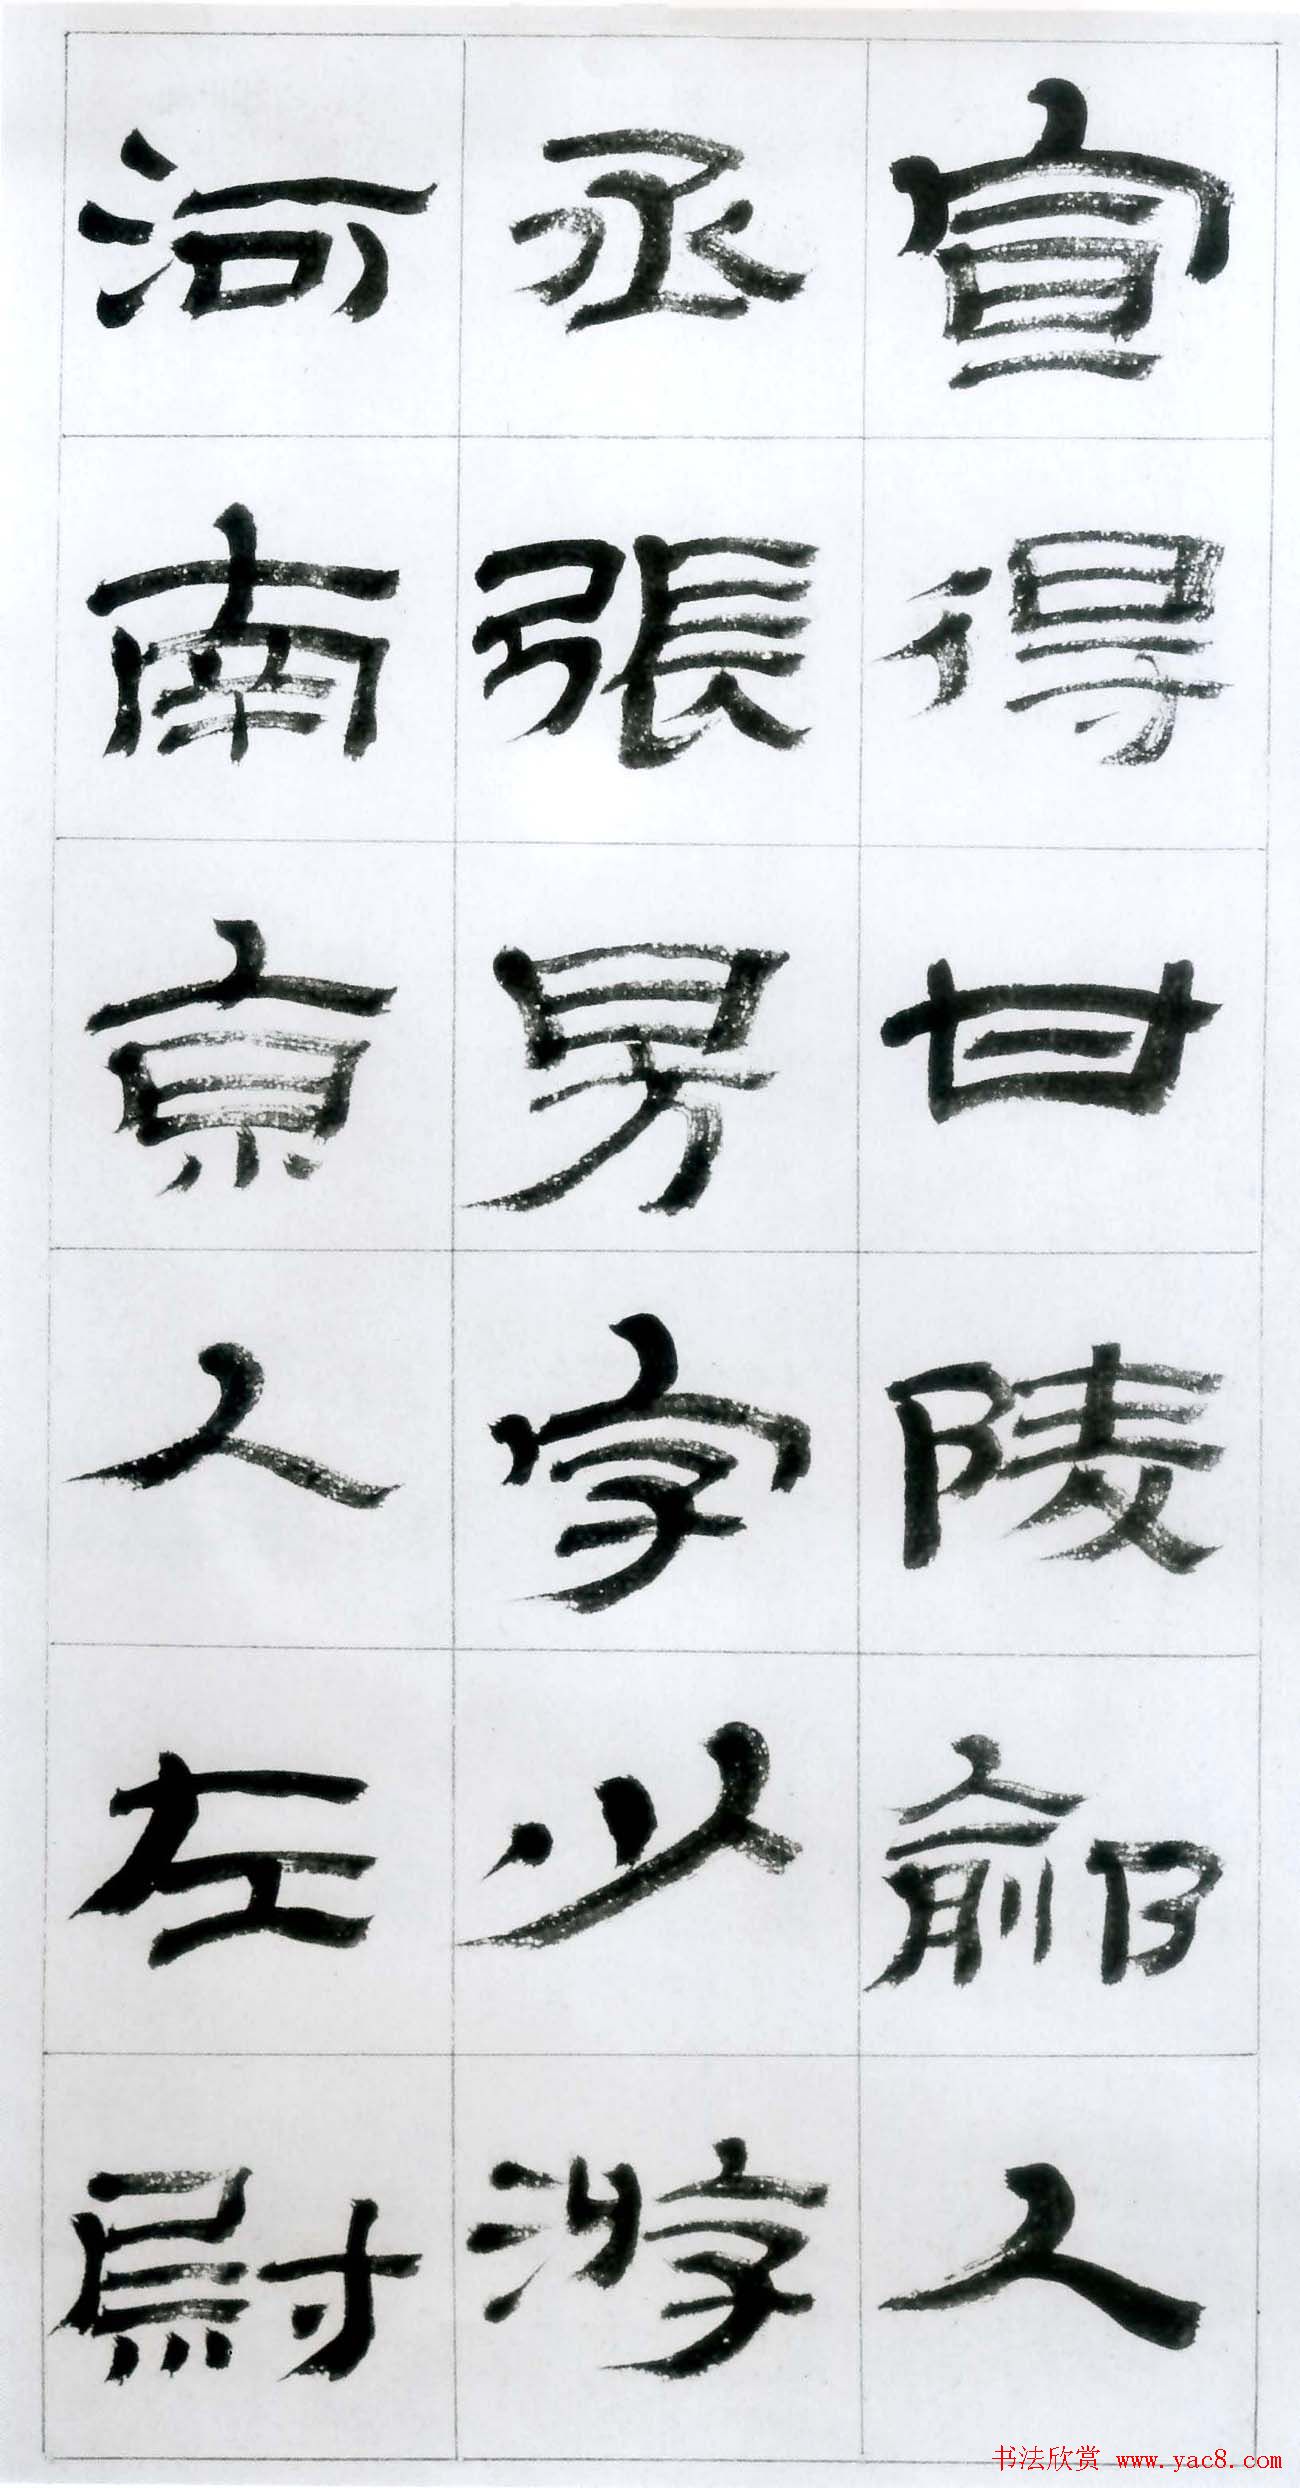 宣得甘陵鄃人
丞張男字少游
河南京人左尉
书法欣赏 www.yac8.com